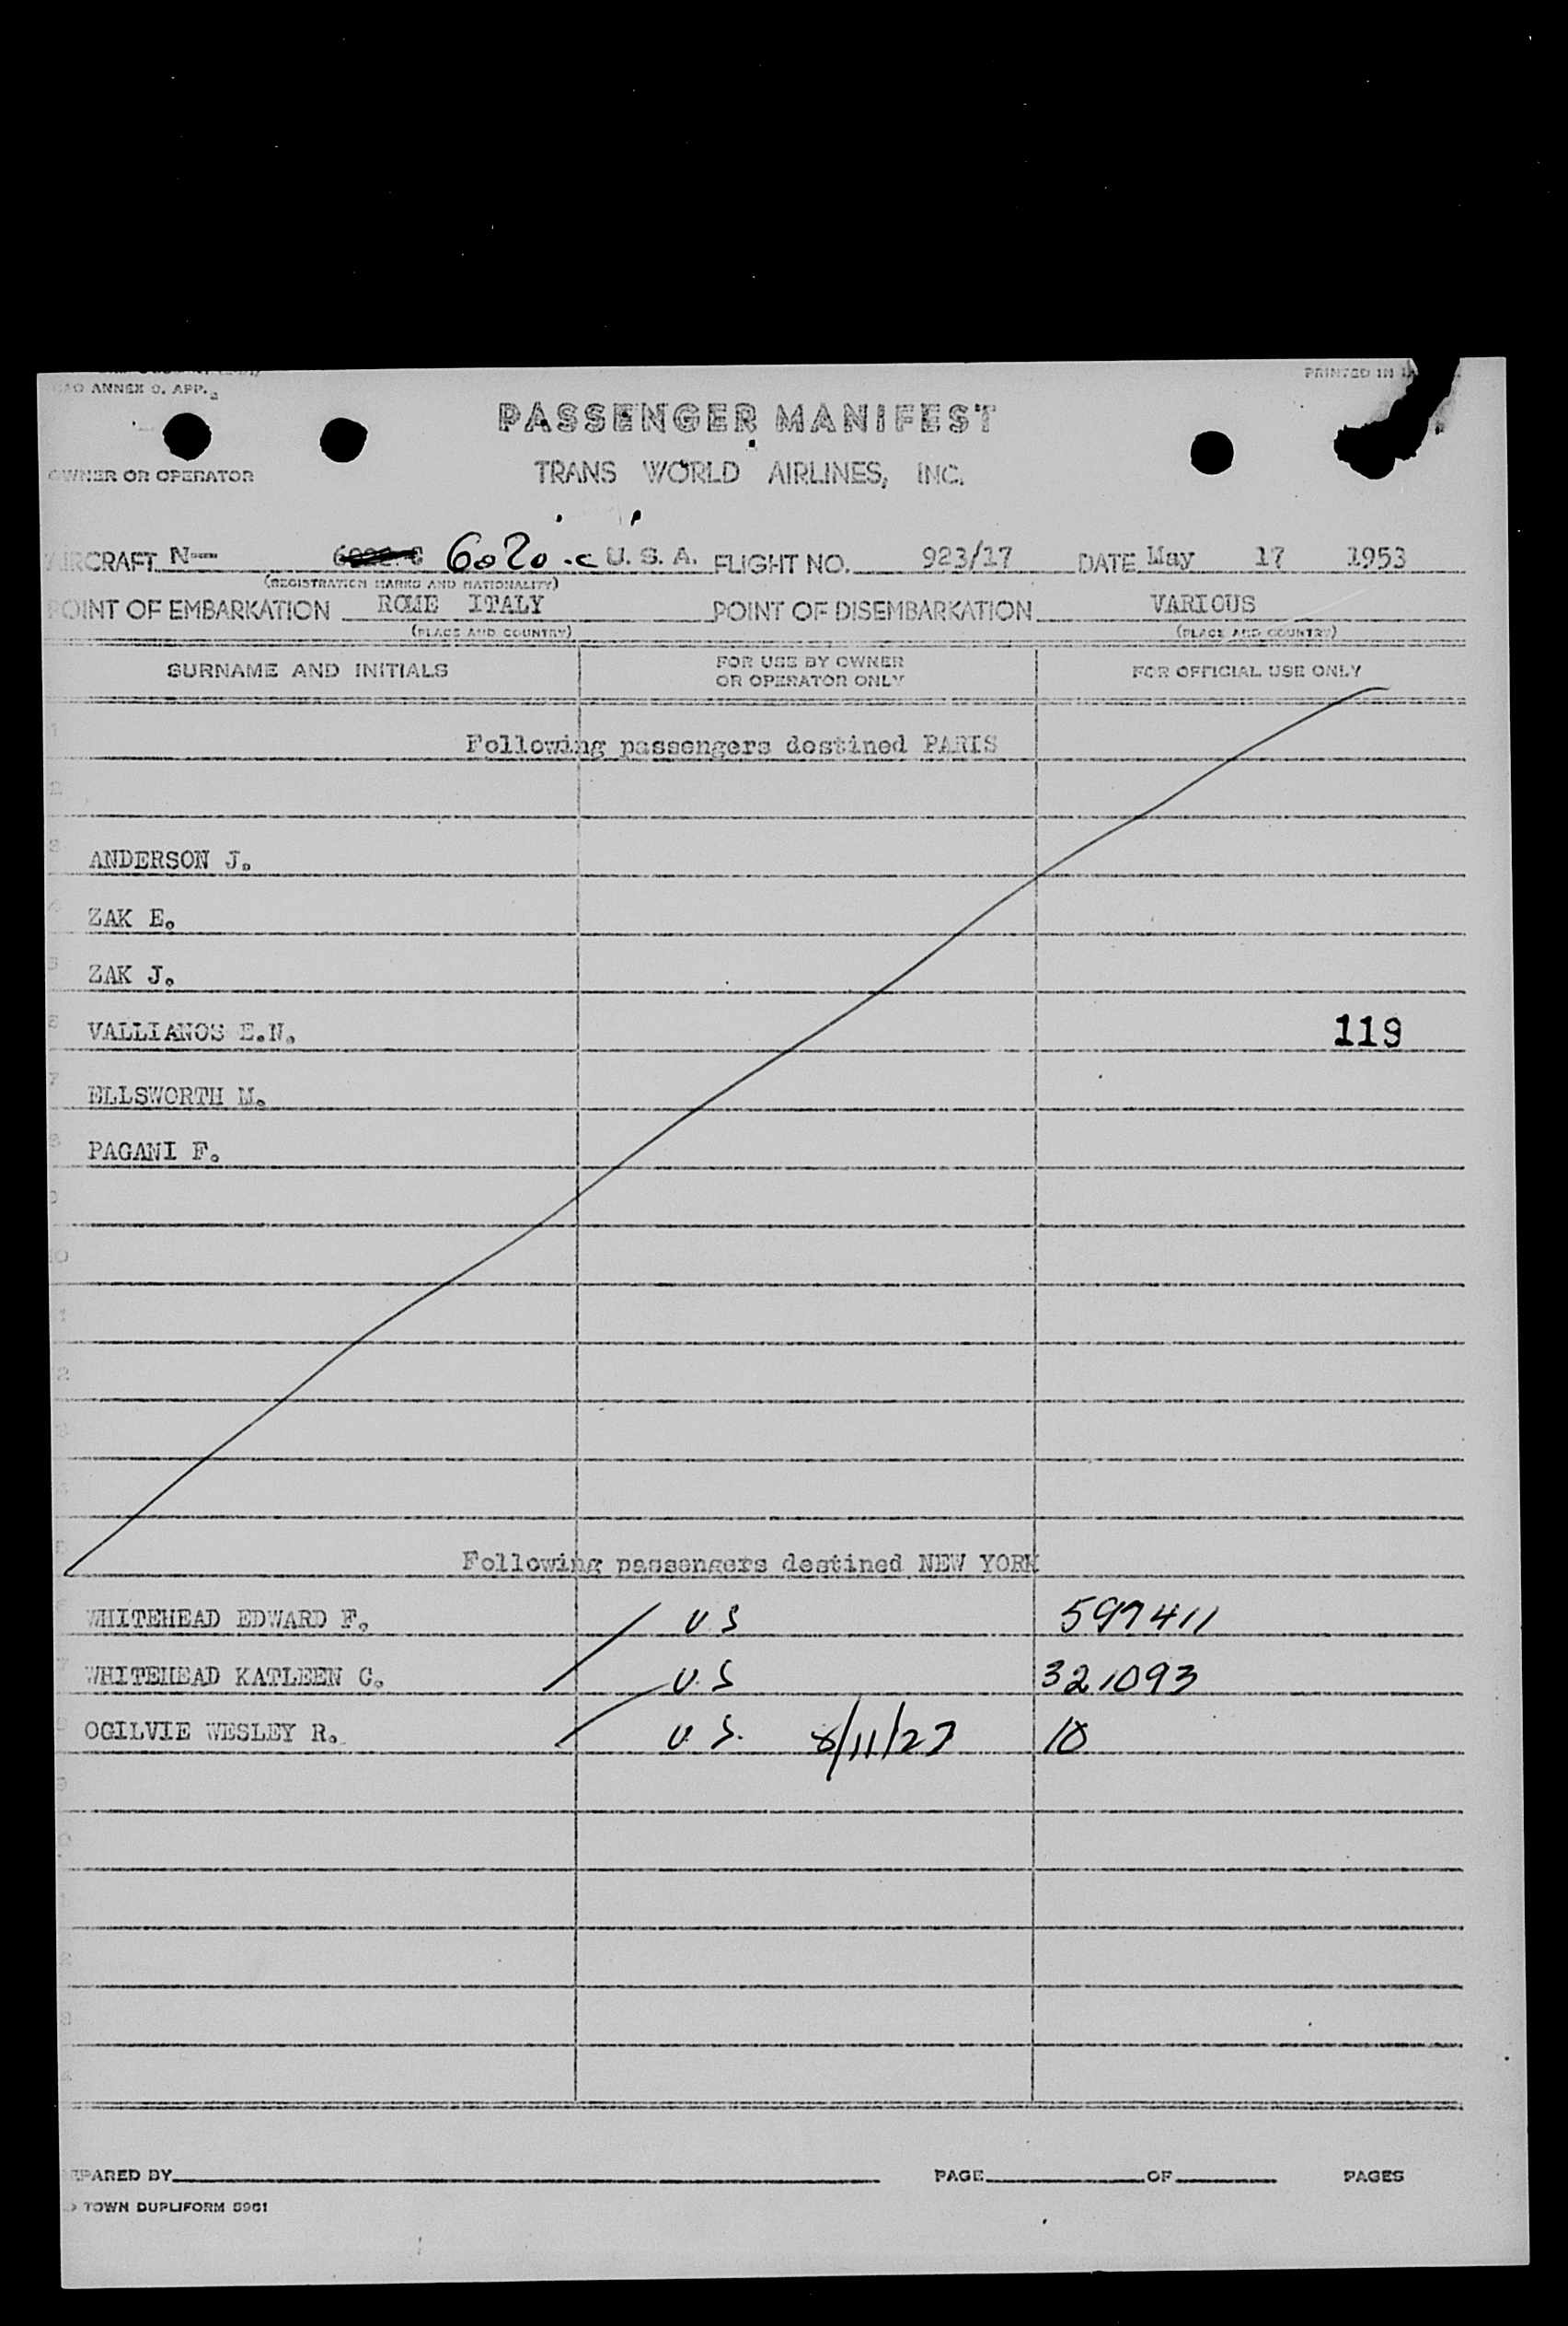 ANNEX 9, APP. 2
PRINTED IN
PASSENGER MANIFEST
OWNER OR OPERATOR
TRANS WORLD AIRLINES, INC.
AIRCRAFT N-- 6020-C U. S. A. FLIGHT NO. 923/17 DATE May 17 1953
(REGISTRATION MARKS AND NATIONALITY)
POINT OF EMBARKATION ROME ITALY POINT OF DISEMBARKATION VARIOUS
(PLACE AND COUNTRY) (PLACE AND COUNTRY)
SURNAME AND INITIALS FOR USE BY OWNER OR OPERATOR ONLY FOR OFFICIAL USE ONLY
1 Following passengers destined PARIS
2
3 ANDERSON J.
4 ZAK E.
5 ZAK J.
6 VALLIANOS E.N. 119
7 ELLSWORTH M.
8 PAGANI F.
9
10
1
2
3
4
5 Following passengers destined NEW YORK
6 WHITEHEAD EDWARD F. U.S 597411
7 WHITEHEAD KATLEEN C. U.S 321093
8 OGILVIE WESLEY R. U.S. 8/11/27 10
9
0
1
2
3
4
PREPARED BY PAGE OF PAGES
TOWN DUPLIFORM 5961